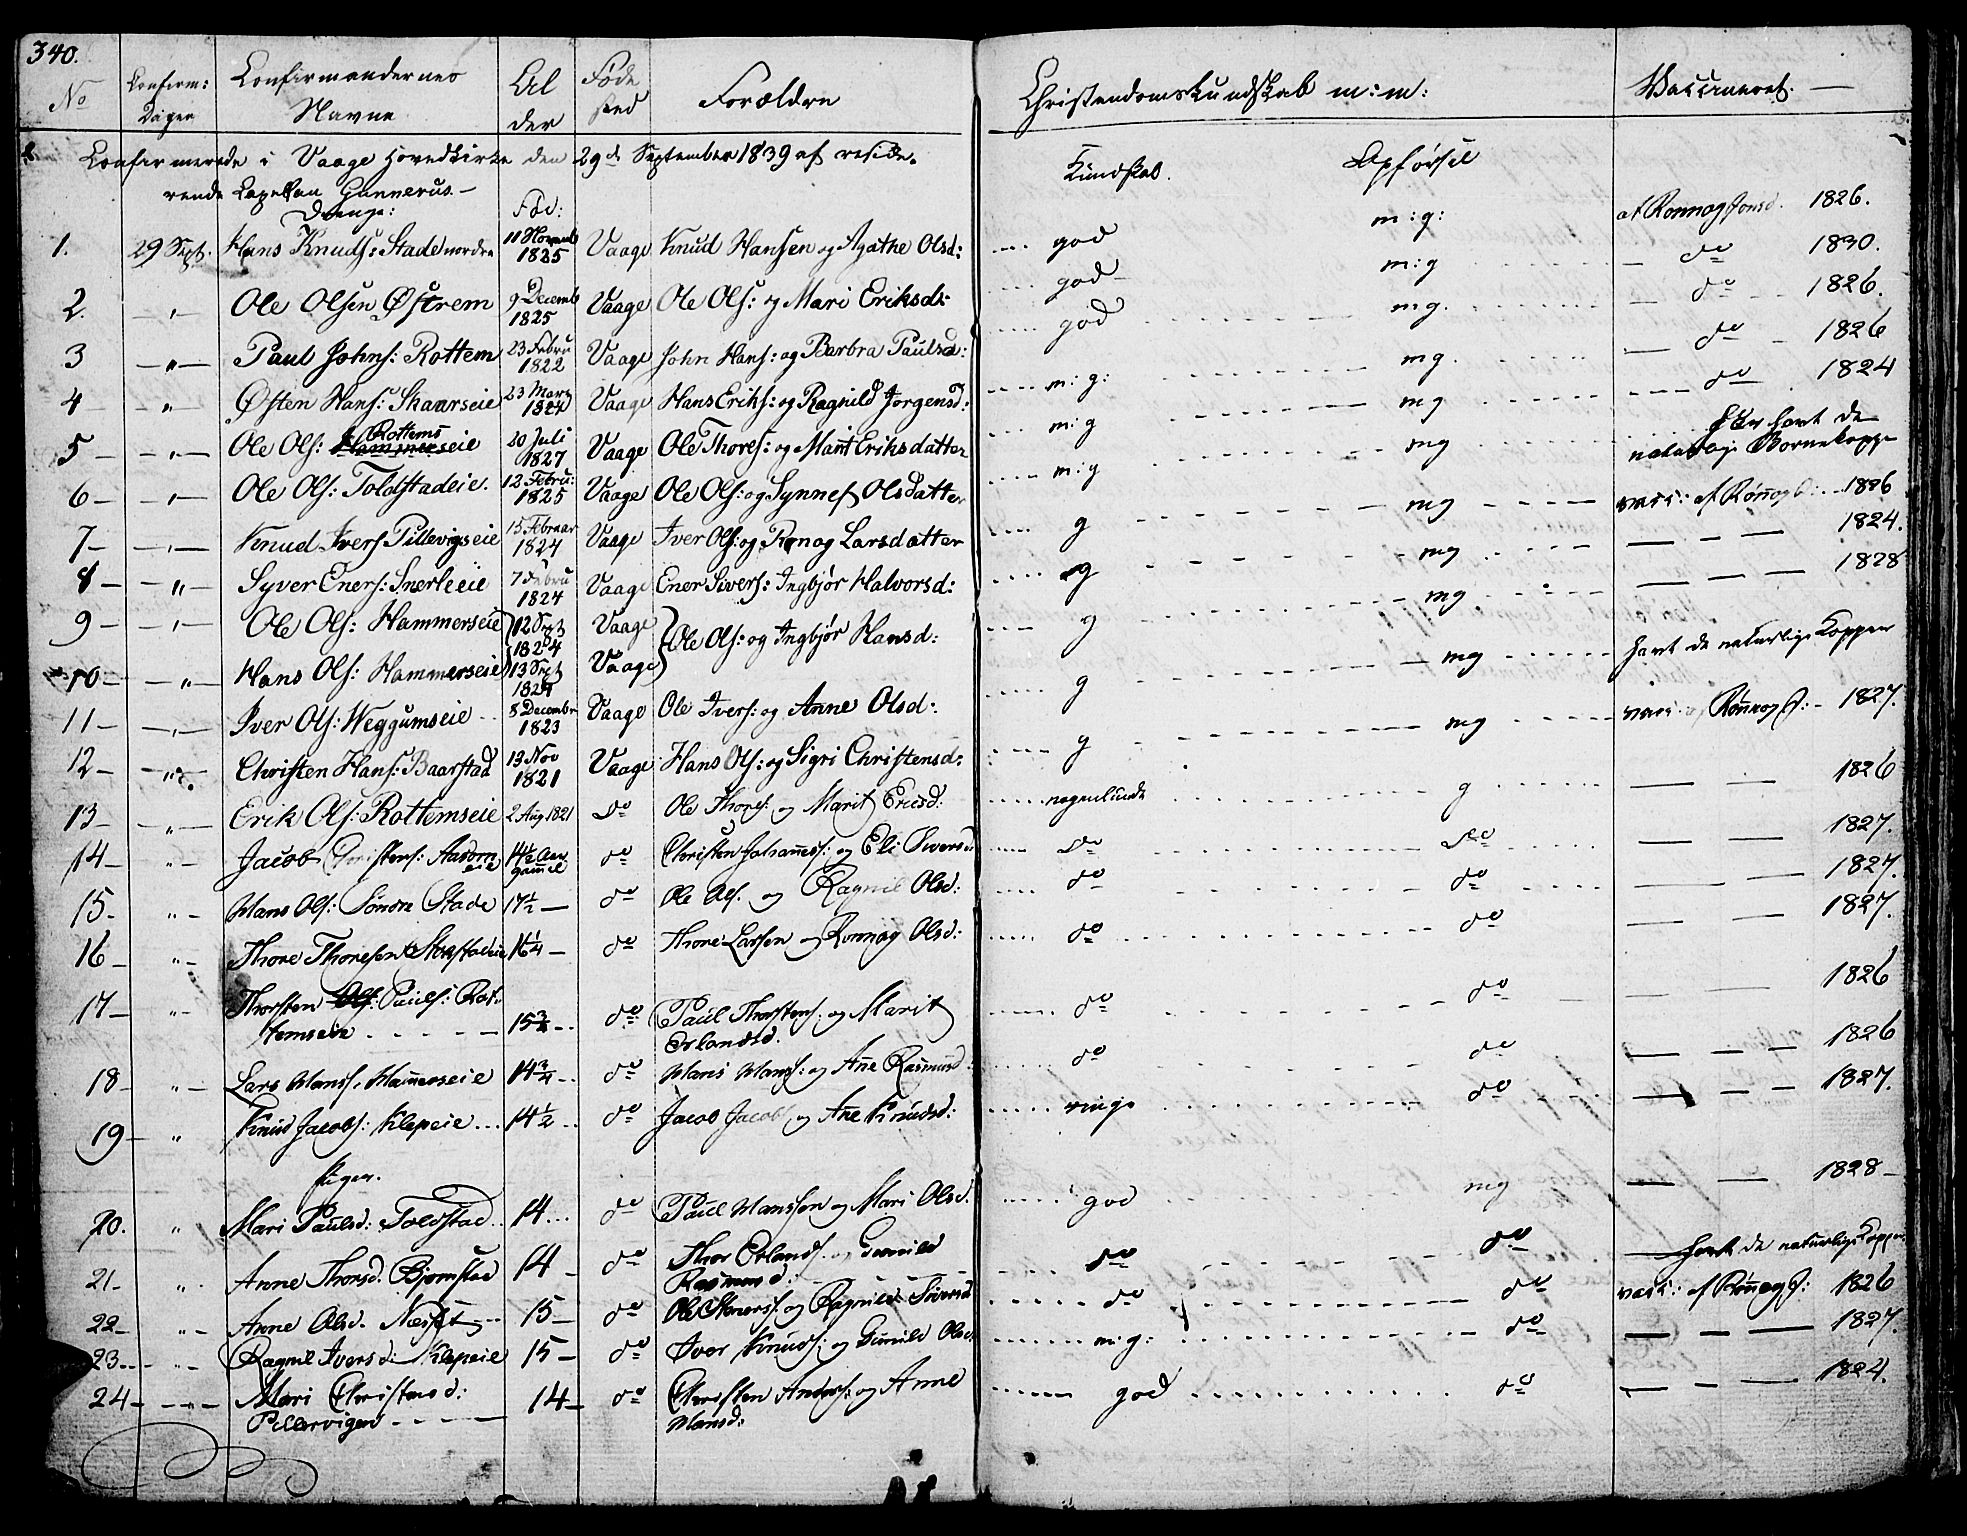 340.
No Confirm: Dagen Confirmandernes Navne Alder Føde sted Forældre Christendomskundskab m:m: Vaccineret. —
Confirmerede i Vaage Hovedkirke den 29de September 1839 af reside-
rende Capellan Gunnerus. —
Drenge: Fød: Kundskab. Opførsel
1. 29 Sept. Hans Knuds: Stade nordre 11 Novemb 1825 Vaage Knud Hansen og Agathe Olsd: god m:g: af Ronnog Jonsd. 1826.
2. — „ — Ole Olsen Østrem 9 Decemb 1825 Vaage Ole Ols: og Mari Eriksd: god m:g do 1830.
3 — „ — Paul Johns: Rottem 23 Febru 1822 Vaage John Hans: og Barbra Paulsd: god mg. do 1826.
4 — „ Østen Hans: Skaarseie 23 Marz 1824 Vaage Hans Eriks: og Ragnild Jorgensd: m:g: mg. do 1826
5 — „ — Ole Ols: Rottems Hammerseie 20 Juli 1827 Vaage Ole Thores: og Marit Eriksdatter m:g mg do 1824
6 — „ — Ole Ols: Toldstadeie. 12 Febru: 1825 Vaage Ole Ols: og Synnef Olsdatter m:g mg har havt de naturlige Bornekopper
7 — „ — Knud Ivers Pillevigseie 15 Februar 1824 Vaage Iver Ols: og Ronog Larsdatter g mg vacc: af Rønnog J: 1826
8 — „ — Syver Eners: Snerleeie 7 Febru 1824 Vaage Ener Sivers: Ingbjør Halvorsd: g mg — — — 1824.
9 — „ — Ole Ols: Hammerseie 12 Sept 1824 Vaage Ole Ols: og Ingbjør Hansd: g mg — — — 1828
10 — „ — Hans Ols: Hammerseie 13 Sept 1824 Vaage g mg havt de naturlige Kopper
11 — „ — Iver Ols: Weggumseie 8 Decembr 1823 Vaage Ole Ivers: og Anne Olsd: g mg vacc: af Rønnog J: 1827.
12 — „ — Christen Hans: Baarstad 13 Nov 1821 Vaage Hans Ols: og Sigri Christensd: nogenlunde g — — 1826
13 — „ — Erik Ols: Rottemseie 2 Aug 1821 do Ole Thores: og Marit Ericsd: do do — — 1827.
14 „ — Jacob Christens: eie 14½ Aar gammel do Christen Johannes: og Eli Siversd do do — — 1827.
15 „ — Hans Ols: Søndre Stade 17½ — do Ole Ols. og Ragnil Olsd: do do — — 1827.
16 „ — Thore Thoresen 16¼ — do Thore Larsen og Ronnog Olsd: do do — — 1826
17 „ — Thorsten Ols: Pauls: Rot-
temseie 15¾ do Paul Thorstens: og Marit
Erlandsd. do do — — — 1826
18 — „ — Lars Hanss. Hammerseie 14¾ do Hans Hanss: og Ane Rasmusd: do do — — — 1827.
19 — „ Knud Jacobs: Klepeie 14½ do Jacob Jacobs og Ane Knudsd: ringe do
Piger.
20. „ Mari Paulsd: Toldstad 14 do Paul Hanssen og Mari Olsd. god mg — — 1828 —
21 — „ Anne Thorsd. Bjørnstad 14 — do Thor Erlands. og Gunild
Rasmusd: do do — havt de naturlige Kopper
22 — „ — Anne Olsd. Næsset 15 — do Ole Steners: og Ragnild Siversd do do vacc: af Rønnog J: 1826
23 — „ — Ragnil Iversd: Klepeie 15 — do Iver Knuds: og Gunild Olsd: m:g: do — — — 1827.
24 — „ — Mari Christensd:
Pillevigen 14 — do Christen Anders: og Anne
Hansd: god do — — — 1824.